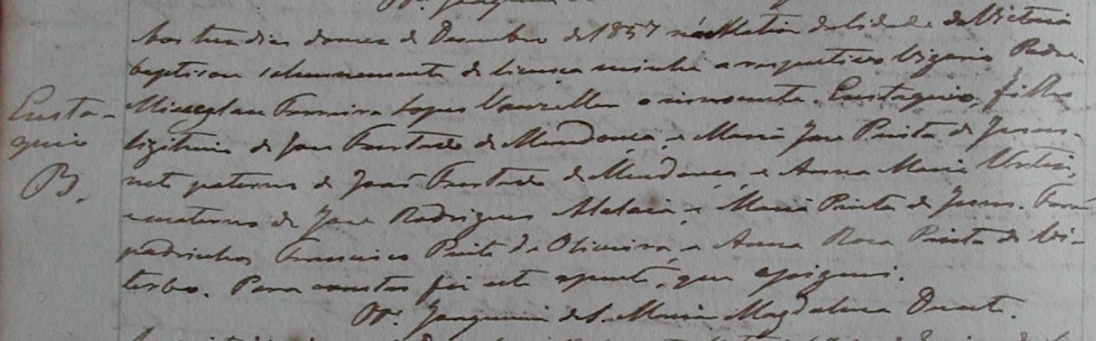 Pe. Joaquim
Aos tres dias do mez de Dezembro de 1857 na Matriz da Cidade da Victoria
baptisou solemnemente de licença minha o respectivo Vigario Padre
Eusta-
Misseslau Ferreira Lopes Vanzeller o innocente Eustaquio, filho
quio
legitimo de José Furtado de Mendonça, e Maria José Pinta de Jesus,
B.
neto paterno de João Furtado de Mendonça, e Anna Maria
e materno de José Rodrigues Malaia, e Maria Pinta de Jesus. Forão
padrinhos Francisco Pinto de Oliveira, e Anna Rosa Pinta de Vi-
terbo. Para constar fiz este assento, que assignei.
Pe. Joaquim de S. Maria Magdalena Duarte.